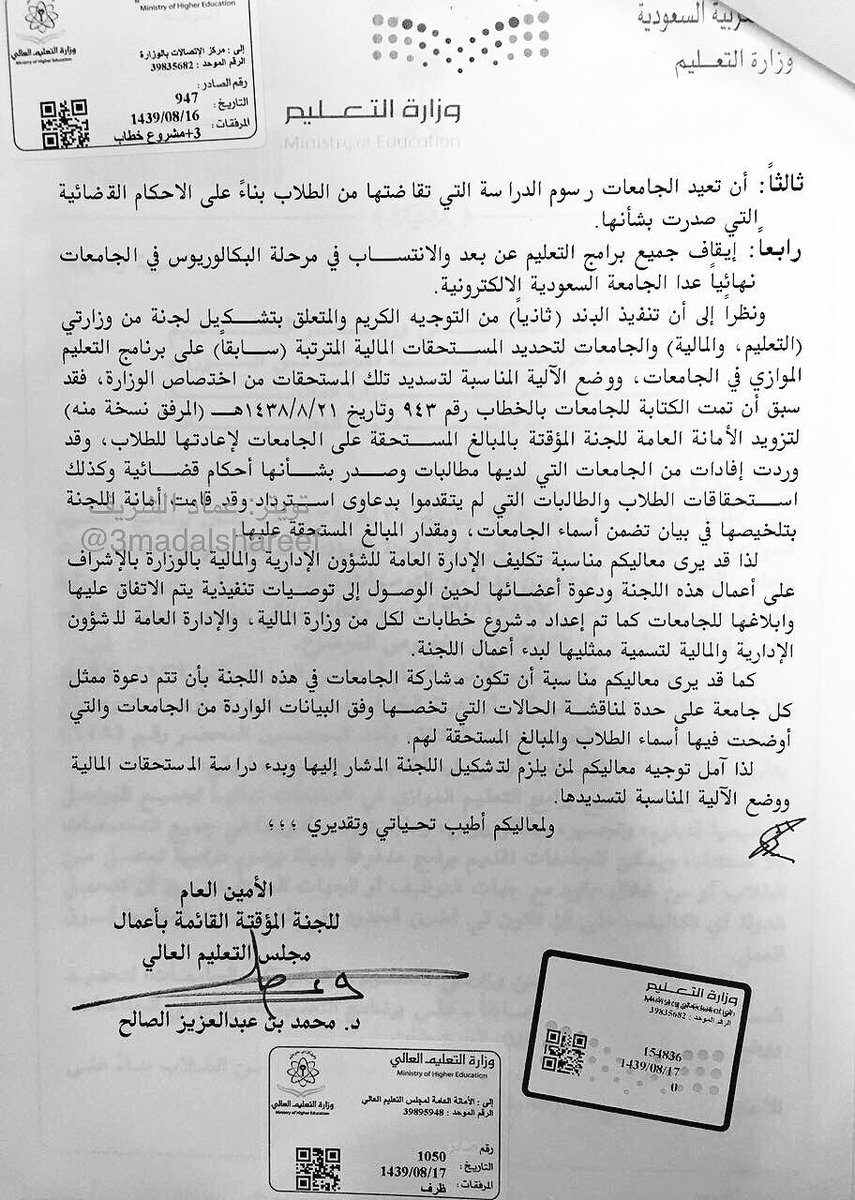 Ministry of Higher Education
وزارة التعليم العالي
Ministry of Higher Education
إلى : مركز الإتصالات بالوزارة
الرقم الموحد : 39835682
رقم الصادر: 947
التاريخ: 1439/08/16
المرفقات: 3+مشروع خطاب
وزارة التعليم
Ministry of Education
السعودية
وزارة التعليم
ثالثاً: أن تعيد الجامعات رسوم الدراسة التي تقاضتها من الطلاب بناءً على الاحكام القضائية
التي صدرت بشأنها.
رابعاً: إيقاف جميع برامج التعليم عن بعد والانتساب في مرحلة البكالوريوس في الجامعات
نهائياً عدا الجامعة السعودية الإلكترونية.
ونظراً إلى أن تنفيذ البند (ثانياً) من التوجيه الكريم والمتعلق بتشكيل لجنة من وزارتي
(التعليم، والمالية) والجامعات لتحديد المستحقات المالية المترتبة (سابقاً) على برنامج التعليم
الموازي في الجامعات، ووضع الآلية المناسبة لتسديد تلك المستحقات من اختصاص الوزارة، فقد
سبق أن تمت الكتابة للجامعات بالخطاب رقم ٩٤٣ وتاريخ ١٤٣٨/٨/٢١هـ (المرفق نسخة منه)
لتزويد الأمانة العامة للجنة المؤقتة بالمبالغ المستحقة على الجامعات لإعادتها للطلاب، وقد
وردت إفادات من الجامعات التي لديها مطالبات وصدر بشأنها أحكام قضائية وكذلك
استحقاقات الطلاب والطالبات التي لم يتقدموا بدعاوى استرداد وقد قامت أمانة اللجنة
بتلخيصها في بيان تضمن أسماء الجامعات، ومقدار المبالغ المستحقة عليها.
تويتر: عماد الشريف
@3madalshareef
لذا قد يرى معاليكم مناسبة تكليف الإدارة العامة للشؤون الإدارية والمالية بالوزارة بالإشراف
على أعمال هذه اللجنة ودعوة أعضائها لحين الوصول إلى توصيات تنفيذية يتم الاتفاق عليها
وابلاغها للجامعات كما تم إعداد مشروع خطابات لكل من وزارة المالية، والإدارة العامة للشؤون
الإدارية والمالية لتسمية ممثليها لبدء أعمال اللجنة.
كما قد يرى معاليكم مناسبة أن تكون مشاركة الجامعات في هذه اللجنة بأن تتم دعوة ممثل
كل جامعة على حدة لمناقشة الحالات التي تخصها وفق البيانات الواردة من الجامعات والتي
أوضحت فيها أسماء الطلاب والمبالغ المستحقة لهم.
لذا آمل توجيه معاليكم لمن يلزم لتشكيل اللجنة المشار إليها وبدء دراسة المستحقات المالية
ووضع الآلية المناسبة لتسديدها.
ولمعاليكم أطيب تحياتي وتقديري ؛؛؛
الأمين العام
للجنة المؤقتة القائمة بأعمال
مجلس التعليم العالي
د. محمد بن عبدالعزيز الصالح
وزارة التعليم
الرقم الموحد : 39835682
154836
1439/08/17
0
وزارة التعليم العالي
Ministry of Higher Education
وزارة التعليم العالي
Ministry of Higher Education
إلى : الأمانة العامة لمجلس التعليم العالي
الرقم الموحد : 39895948
رقم 1050
التاريخ: 1439/08/17
المرفقات: ظرف